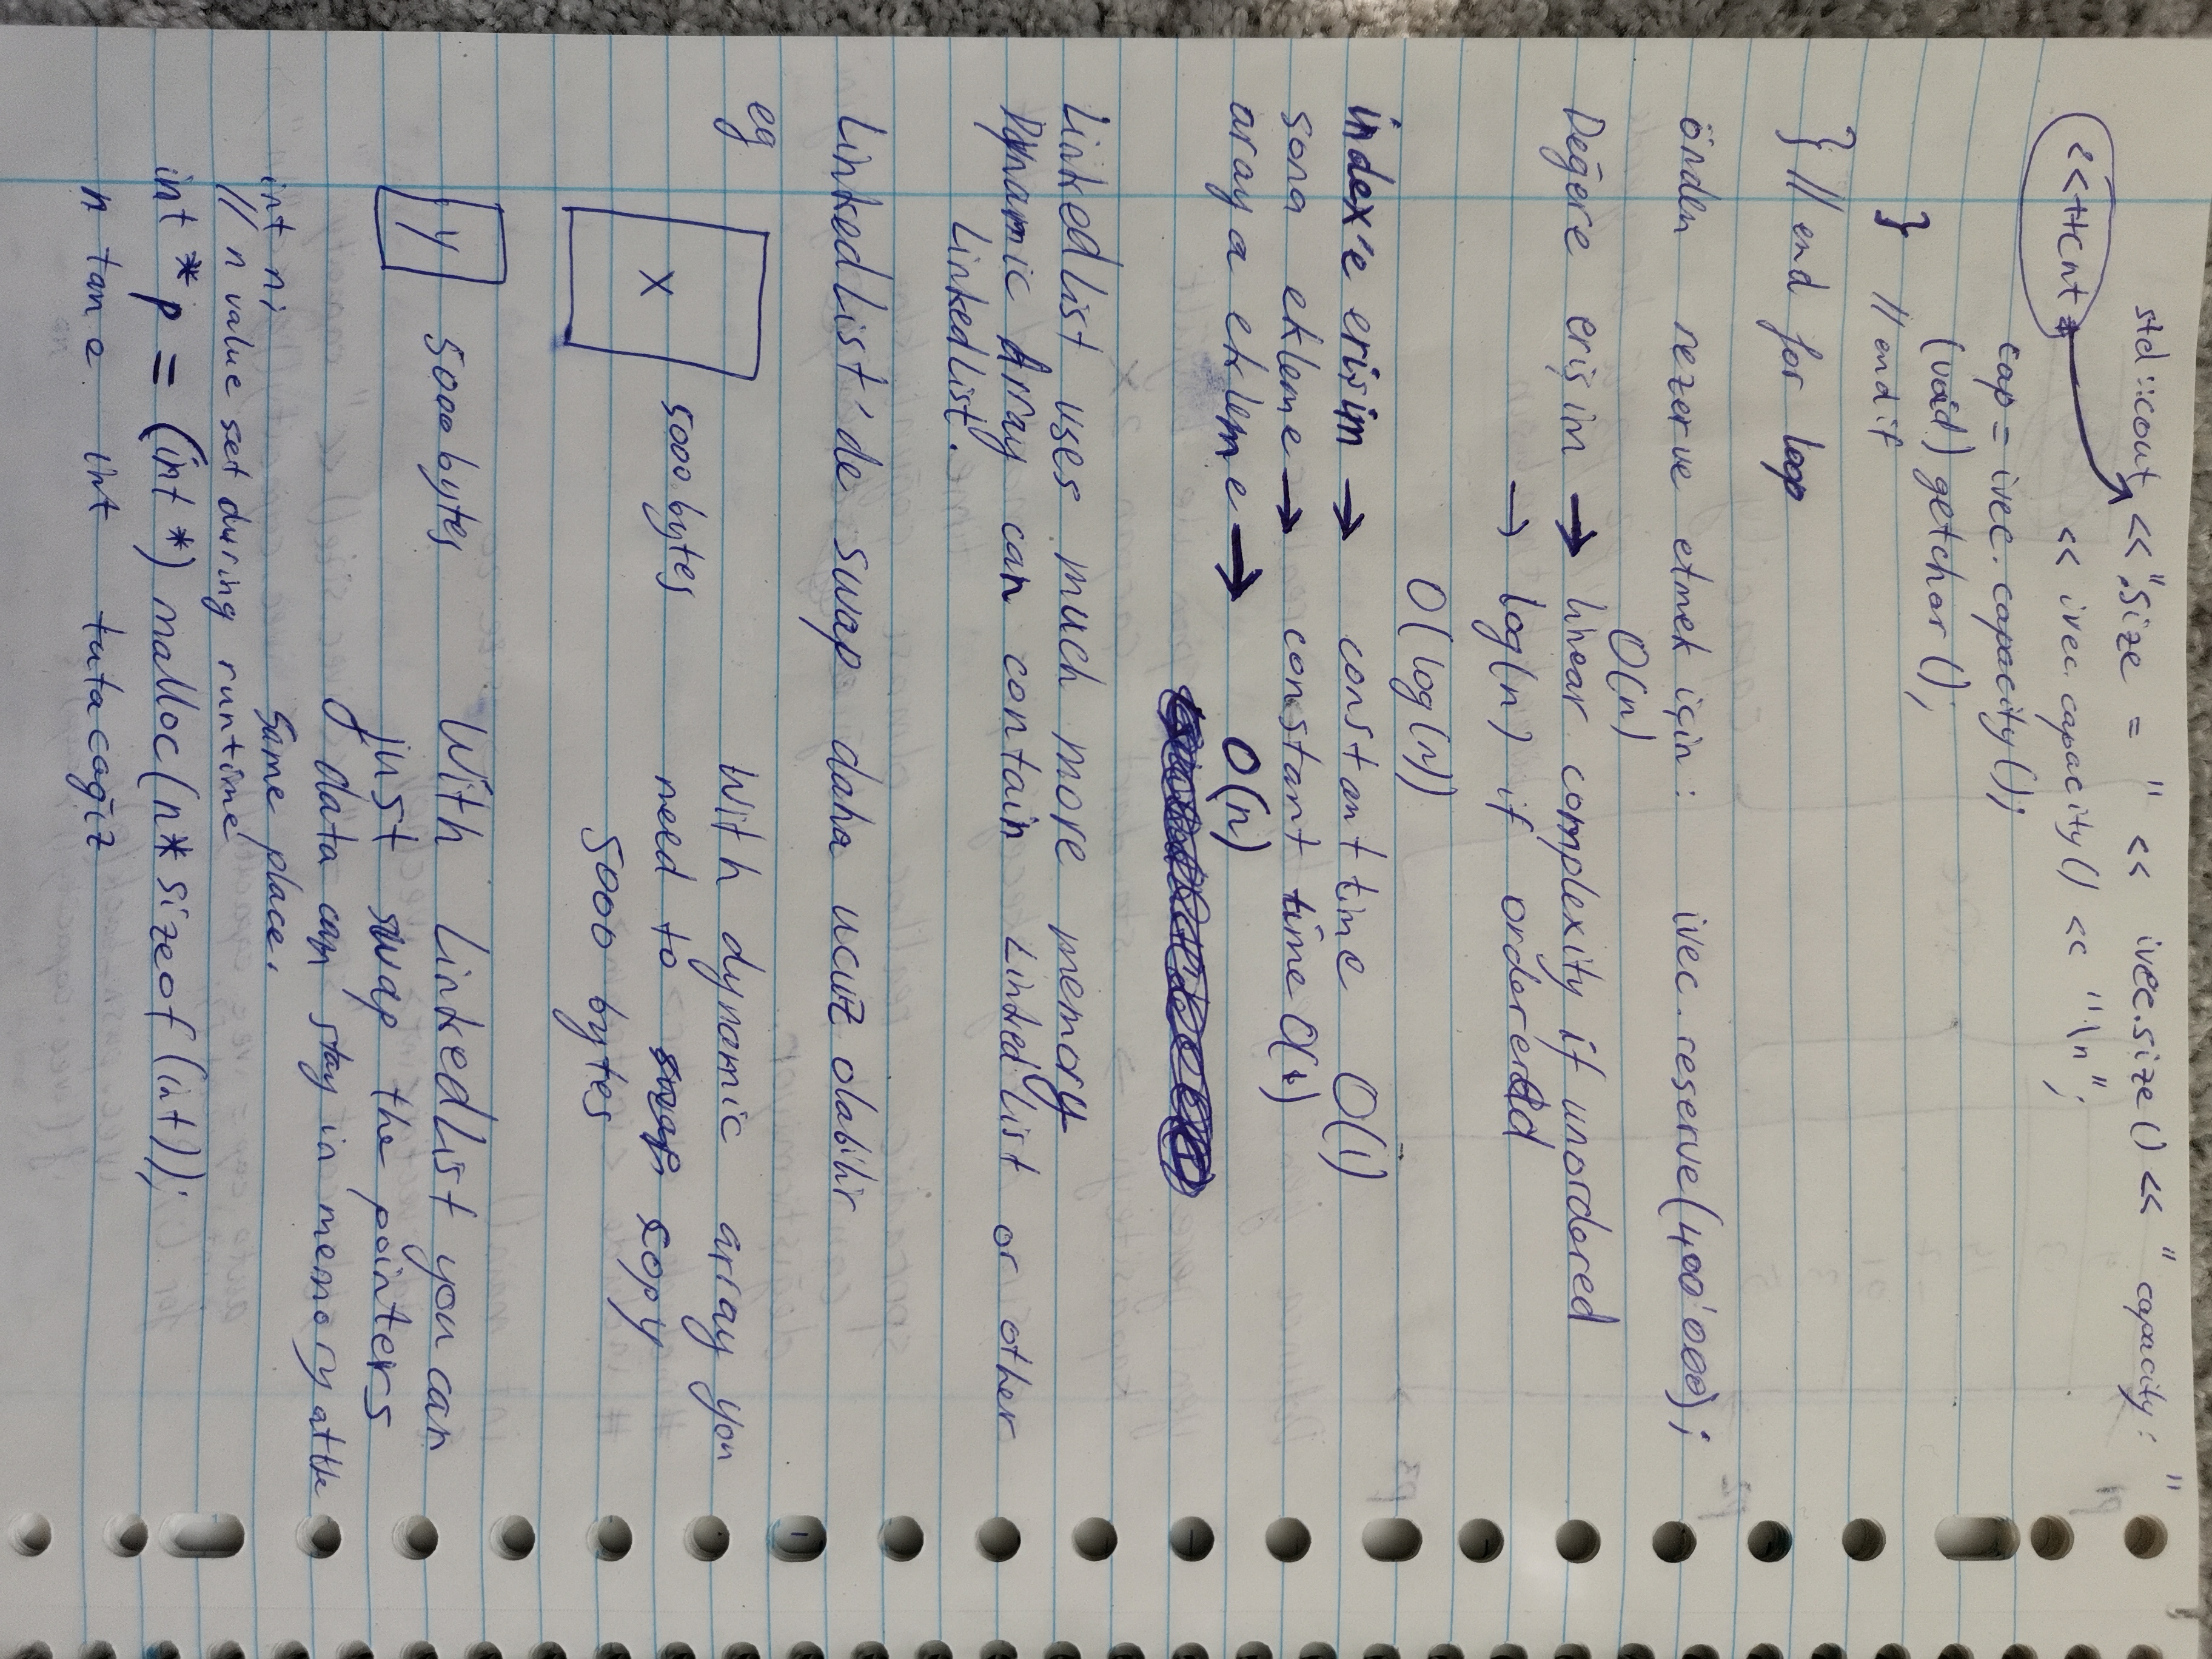 std::cout << "Size = " << ivec.size() << " capacity: "
<<++cnt
<< ivec.capacity() << "\n";
cap = ivec.capacity();
(void) getchar();
} // endif
} // end for loop
önden rezerve etmek için: ivec.reserve(400'000);
O(n)
Değere erişim → linear complexity if unordered
→ log(n) if ordererdd
O(log(n))
index'e erişim → constant time O(1)
sona ekleme → constant time O(1)
araya ekleme → O(n)
LinkedList uses much more memory
Dynamic Array can contain LinkedList or other
LinkedList.
LinkedList'de swap daha ucuz olabilir
eg
With dynamic array you
X 5000 bytes
need to swap copy
5000 bytes
y 5000 bytes
With LinkedList you can
just swap the pointers
data can stay in memory at the
same place.
int n;
// n value set during runtime
int *p = (int *) malloc(n* sizeof(int));
n tane int tutacağız